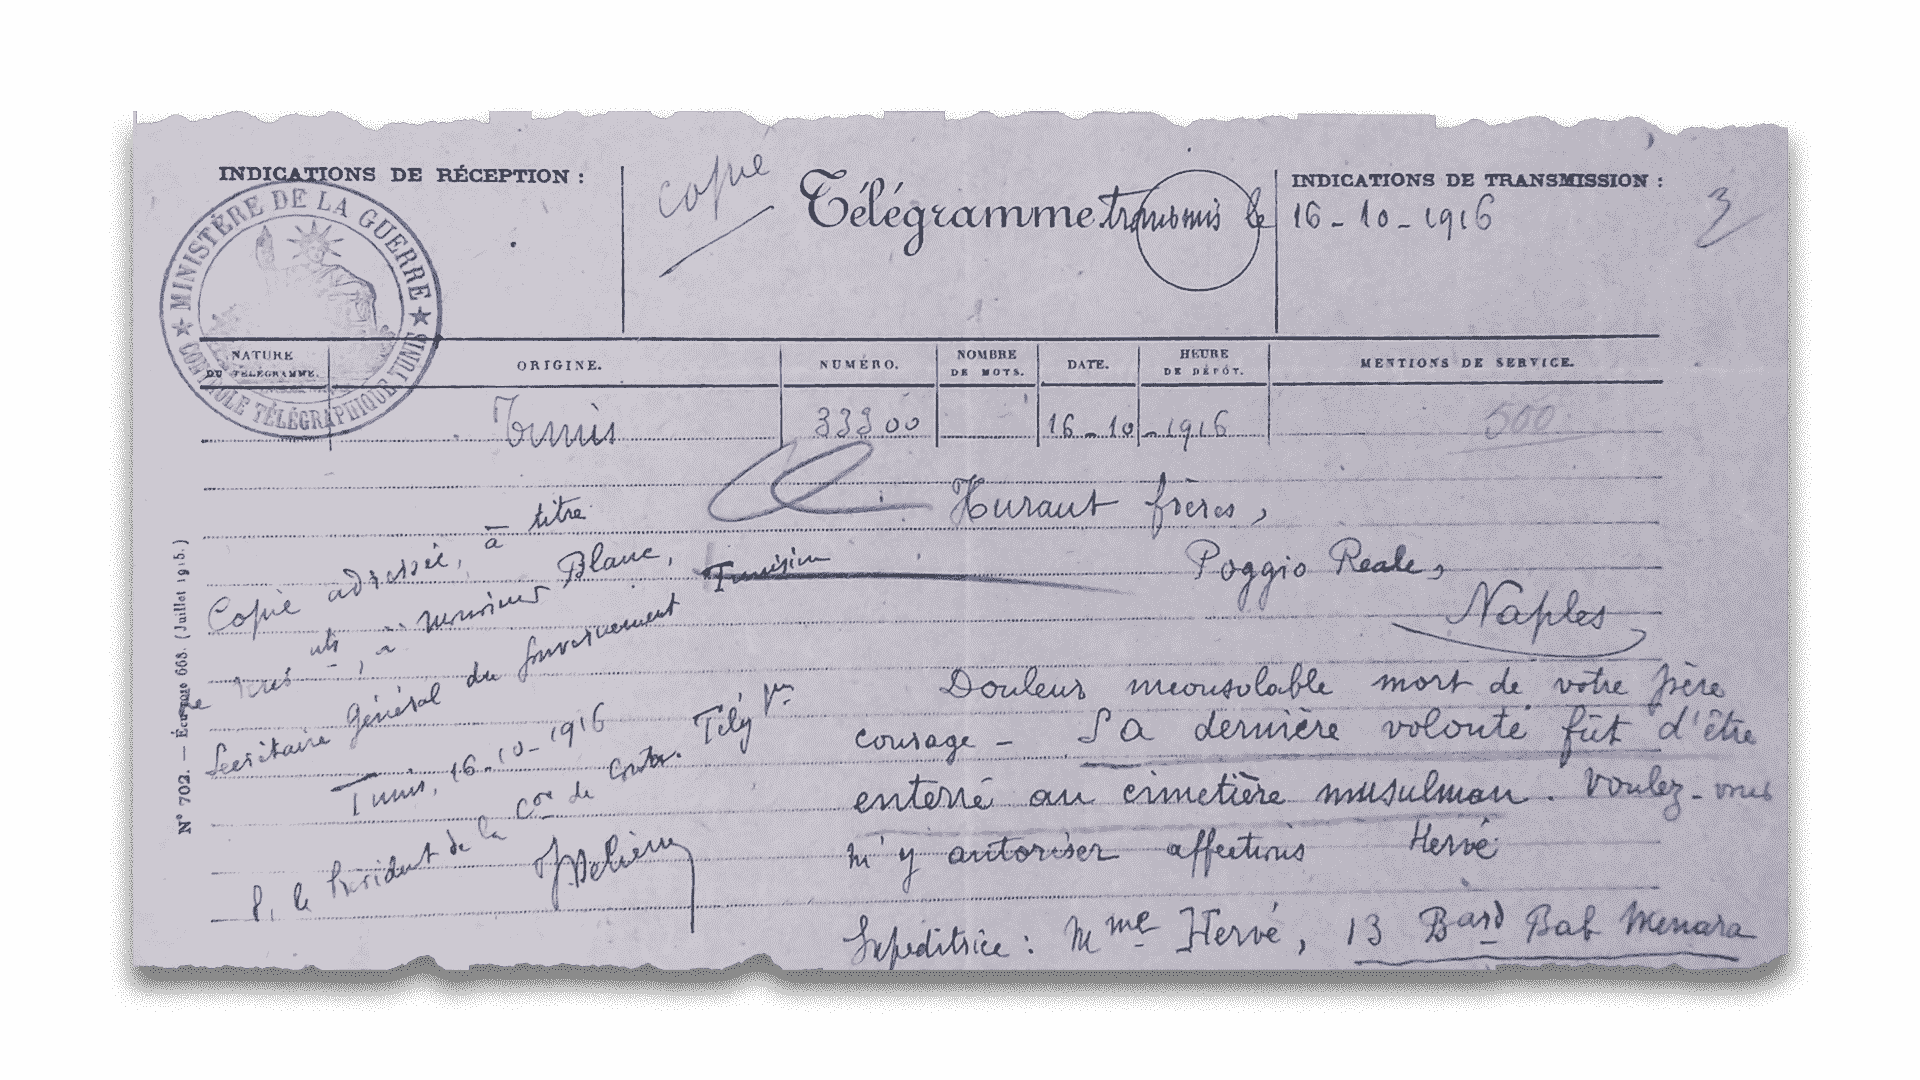 INDICATIONS DE RÉCEPTION :
MINISTÈRE DE LA GUERRE
CONTRÔLE TÉLÉGRAPHIQUE TUNIS
copie
Télégramme transmis le
INDICATIONS DE TRANSMISSION :
16-10-1916
3
NATURE DU TÉLÉGRAMME.
ORIGINE.
NUMÉRO.
NOMBRE DE MOTS.
DATE.
HEURE DE DÉPÔT.
MENTIONS DE SERVICE.
Tunis
33300
16-10-1916
500
Huraut frères,
Poggio Reale,
Naples
Douleur inconsolable mort de votre frère
courage - Sa dernière volonté fût d'être
enterré au cimetière musulman. Voulez-vous
m'y autoriser affections Hervé
Expéditrice : Mme Hervé, 13 Bard Bab Menara
Copie adressée, à titre
à Monsieur Blanc,
Secrétaire Général du Gouvernement Tunisien
Tunis, 16-10-1916
P. le Président de la Con de Contr. Télég
N° 702. — 668. (Juillet 1915.)